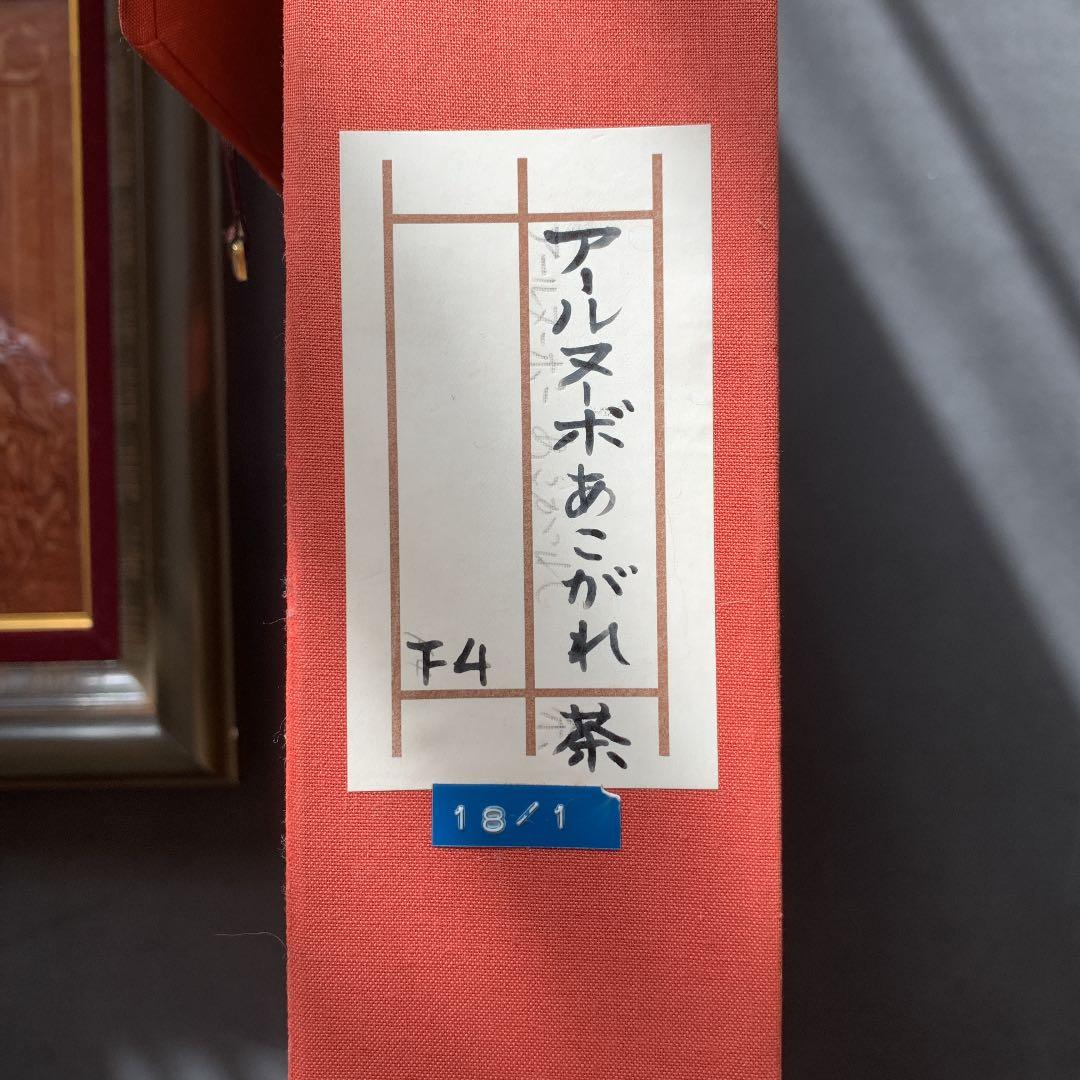 アールヌーボあこがれ
茶
F4
18/1